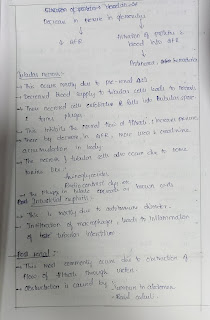 Decrease in pressure in glomerulus
↓ GFR
proteins &
blood into GFR
Proteinuria, Hematuria
Tubular necrosis:-
→ This occur mostly due to pre-renal AKI
→ Decreased blood supply to tubular cells leads to necrosis
→ These necrosed cells exfoliates & falls into tubular space
& forms plugs.
→ This inhibits the normal flow of filtrate & increases pressure
→ Then by decrease in GFR, there
accumulation in body
→ The necrosis of tubular cells also occur due to some
toxins like
Aminoglycosides
Radiocontrast dye
→ The plugs in tubule
Interstitial nephritis:-
→ This is mostly due to autoimmune disorders.
→ Infiltration of macrophages, leads to inflammation
of tubular interstitium
Post renal:-
→ This most commonly occurs due to obstruction of
flow of filtrate through ureter.
→ Obstruction is caused by Tumour in abdomen
- Renal calculi.